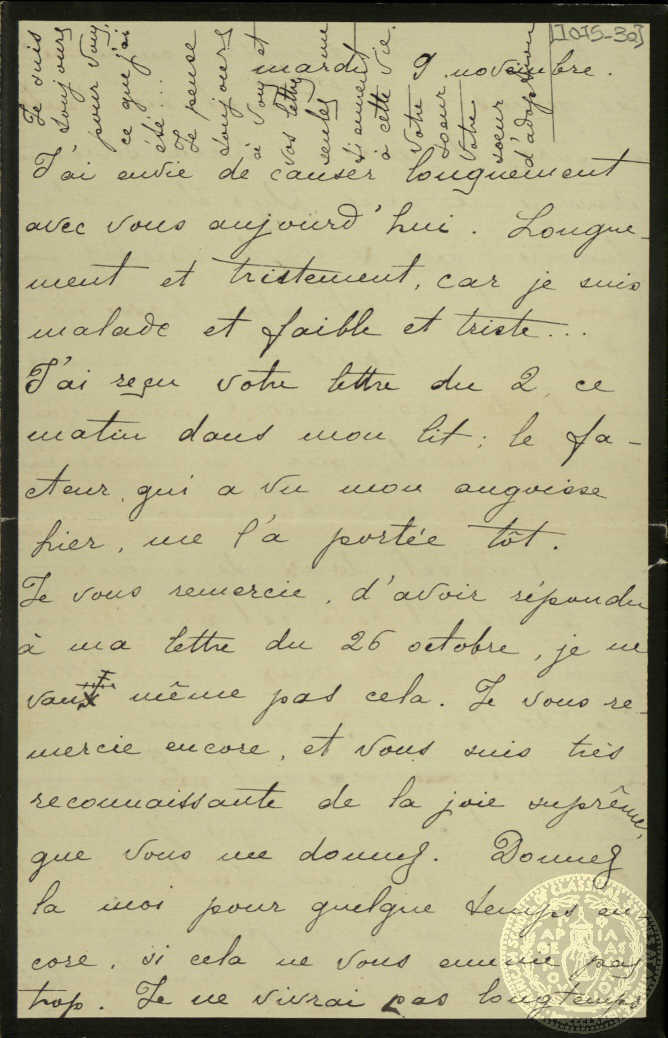 [1075-30]
Je suis
toujours
pour vous,
ce que j'ai
été...
Je pense
toujours
à vous et
vos lettres
seules me
ramènent
à cette vie.
Votre
sœur
Votre
sœur
d'adoption
mardi 9 novembre.
J'ai envie de causer longuement
avec vous aujourd'hui. Longue-
ment et tristement, car je suis
malade et faible et triste...
J'ai reçu votre lettre du 2, ce
matin dans mon lit; le fa-
cteur, qui a vu mon angoisse
hier, me l'a portée tôt.
Je vous remercie, d'avoir répondu
à ma lettre du 26 octobre, je ne
vaux même pas cela. Je vous re-
mercie encore, et vous suis très
reconnaissante de la joie suprême,
que vous me donnez. Donnez
la moi pour quelque temps en-
core, si cela ne vous ennuie pas
trop. Je ne vivrai pas longtemps